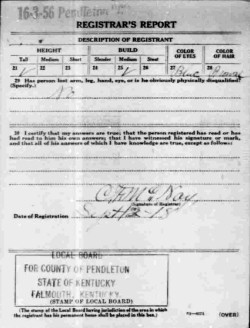 16-3-56 Pendleton
REGISTRAR'S REPORT
DESCRIPTION OF REGISTRANT
HEIGHT BUILD COLOR OF EYES COLOR OF HAIR
Tall Medium Short Slender Medium Stout
21 22 23 24 25 26 27 Blue 28 Brown
29 Has person lost arm, leg, hand, eye, or is he obviously physically disqualified?
(Specify.)
No
30 I certify that my answers are true; that the person registered has read or has
had read to him his own answers; that I have witnessed his signature or mark,
and that all of his answers of which I have knowledge are true, except as follows:
(Signature of Registrar)
Date of Registration Sept 12-18
LOCAL BOARD
FOR COUNTY OF PENDLETON
STATE OF KENTUCKY
FALMOUTH, KENTUCKY
(STAMP OF LOCAL BOARD)
(The stamp of the Local Board having jurisdiction of the area in which
the registrant has his permanent home shall be placed in this box.)
(OVER)